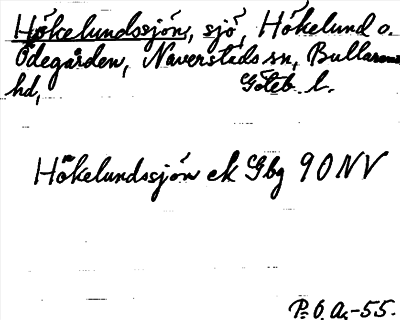 Hökelundssjön, sjö, Hökelund o.
Ödegården, Naverstads sn, Bullarens
hd, Göteb. l.
Hökelundssjön ek Gbg 90 NV
P. Ö. Ag. -55.